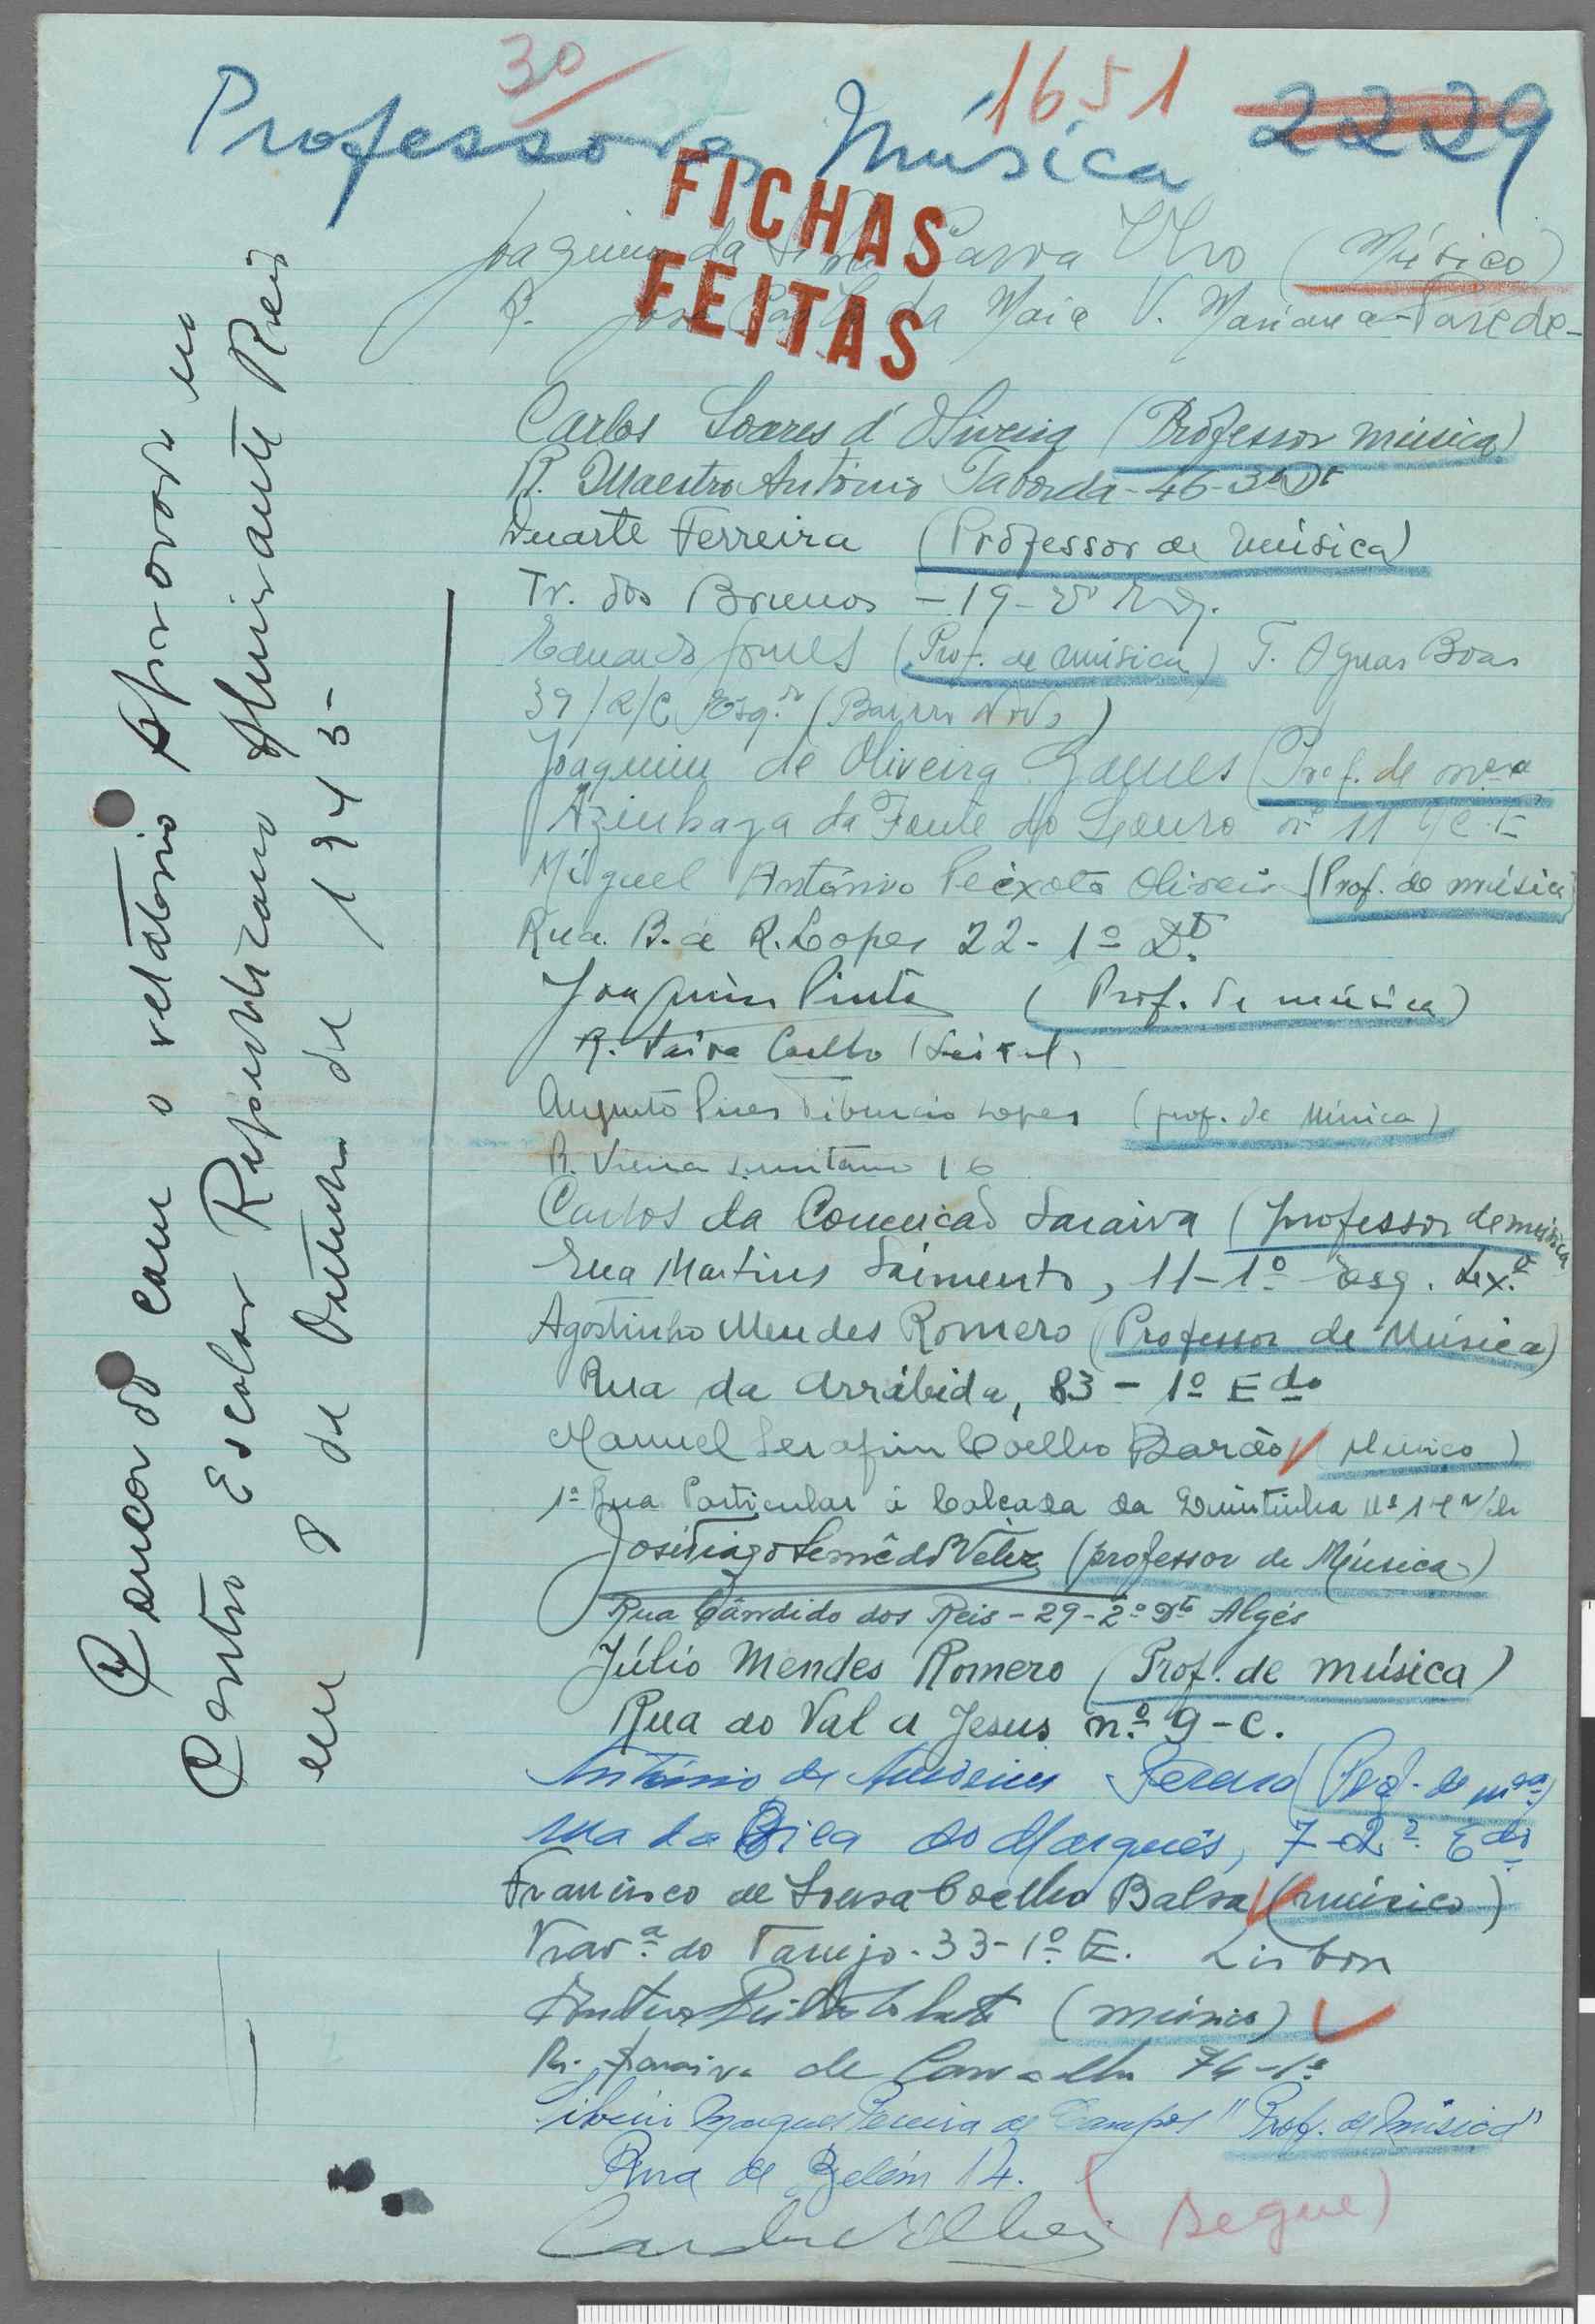 30
1651
2229
Professores Música
FICHAS
FEITAS
Joaquim da Silva (Músico)
R. José da Maia V. Mariana - Parede -
Concordo com o relatório aprovado no
Centro Escolar Republicano Almirante Reis
em 8 de Outubro de 1945-
Carlos Soares d'Oliveira (Professor música)
R. Maestro António Taborda - 46-3º Dt
Duarte Ferreira (Professor de música)
Tr. dos Brunos - 19-
Eduardo Gomes (Prof. de música) T. Aguas Boas
39/R/C Esq.º (Bairro Novo)
Joaquim de Oliveira Gomes (Prof. de m.ca
Azinhaga da Fonte do Louro nº 11
Miguel António Peixoto Oliveira (Prof. de música)
Rua. B. R. Lopes 22- 1º Dtº
Joaquim Pinto (Prof. de música)
R. Paiva Coelho (Seixal)
Augusto Pires Tiburcio Lopes (prof. de Música)
R. Vieira 16
Carlos da Conceicao Saraiva (professor de música
Rua Martins Sarmento, 11-1º Esq. Lx.ª
Agostinho Mendes Romero (Professor de Música)
Rua da Arrábida, 83 - 1º Edo
Manuel Serafim Coelho Barão (Musico)
1ª Rua Particular á Calçada da Quintinha Nº
José Tiago Semêdo Velez (professor de Música)
Rua Cândido dos Reis - 29-2º Dtº Algés
Júlio Mendes Romero (Prof. de música)
Rua do Val a Jesus n.º 9-C.
António de (Prof. de m.ca)
rua da Bica do Marquês, 7-2º. Edo
Francisco de Sousa Coelho Balsa (músico)
Trav.ª do Tarujo-33-1º E. Lisboa
(músico)
R. Saraiva de Carvalho 76-1º
Libério Marques Pereira de Campos "Prof. de Música"
Rua de Belém 14.
(segue)